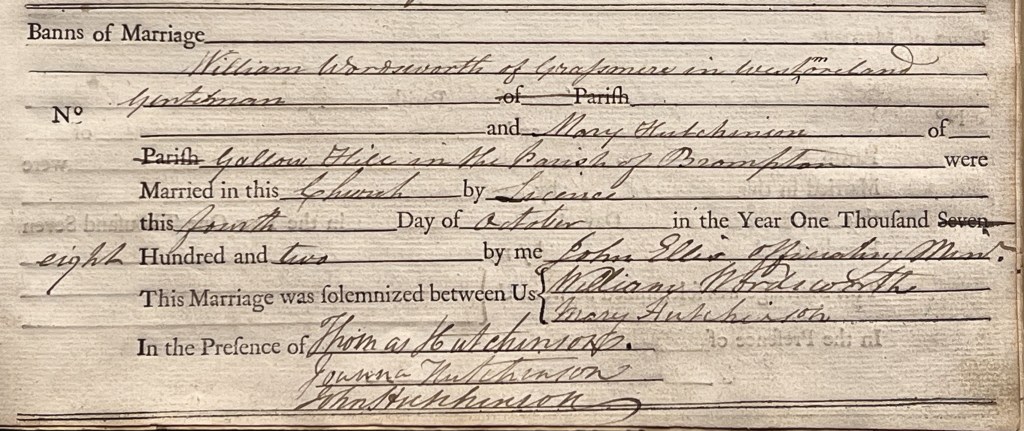 Banns of Marriage
William Wordsworth of Graſsmere in Westmoreland
Nº Gentleman of Pariſh
and Mary Hutchinson of
Pariſh Gallow Hill in the Parish of Brompton were
Married in this Church by Licence
this fourth Day of October in the Year One Thouſand Seven
eight Hundred and two by me John Ellis Officiating Minr.
This Marriage was ſolemnized between Us { William Wordsworth
Mary Hutchinson
In the Preſence of Thomas Hutchinson.
Joanna Hutchinson
John Hutchinson